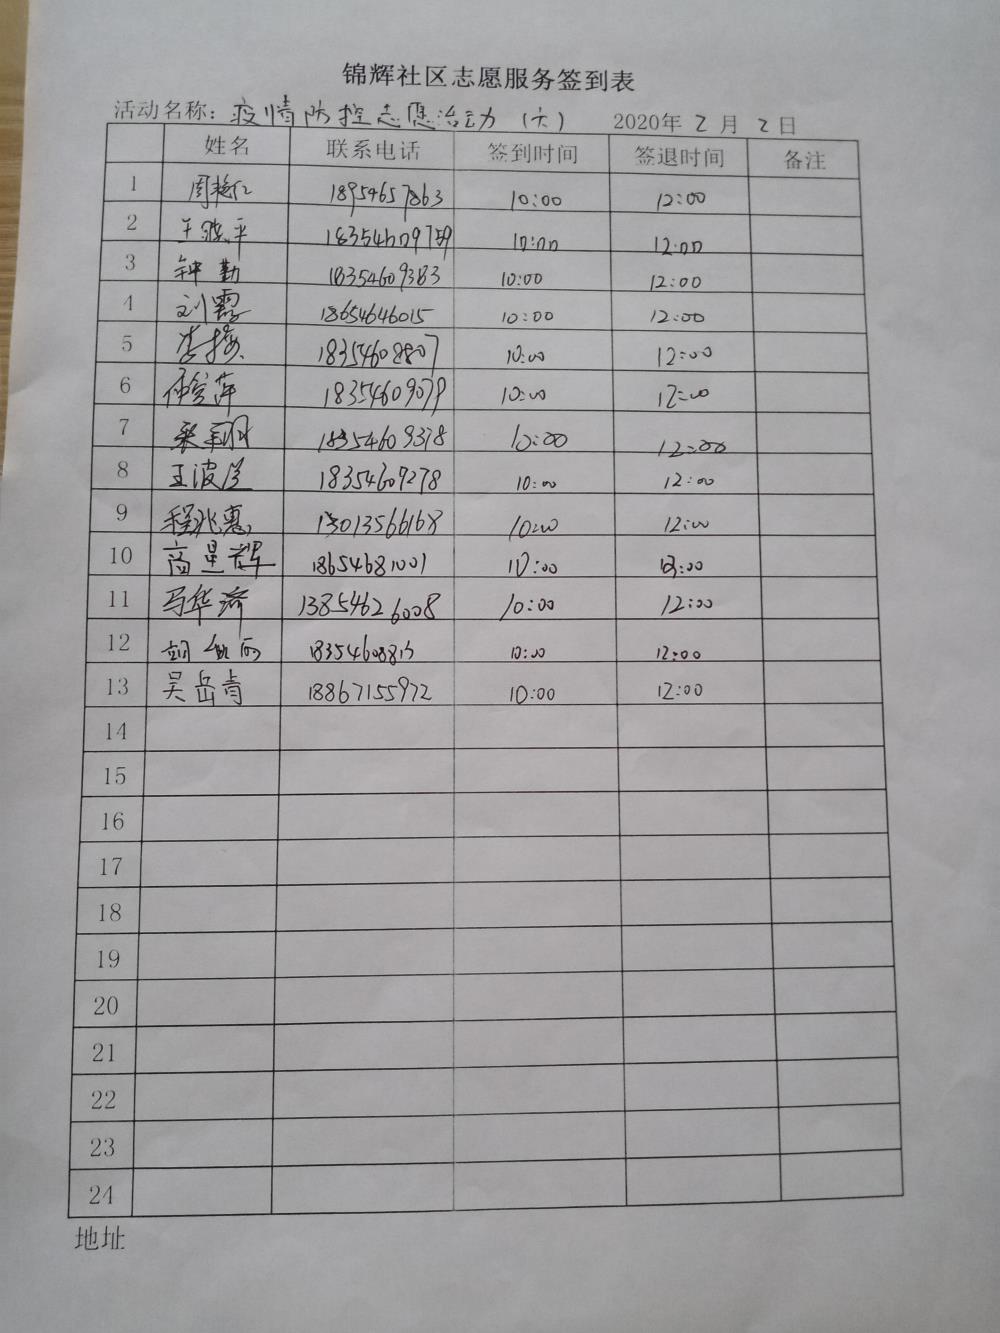 锦辉社区志愿服务签到表
活动名称：疫情防控志愿活动（六） 2020年2月2日
姓名 联系电话 签到时间 签退时间 备注
1 周艳仁 18954657863 10:00 12:00
2 王晓平 18354609759 10:00 12:00
3 钟勤 18354609383 10:00 12:00
4 刘霞 18654646015 10:00 12:00
5 李梅 18354608807 10:00 12:00
6 萍 18354609079 10:00 12:00
7 18354609378 10:00 12:00
8 王波 18354609278 10:00 12:00
9 程兆惠 15013566168 10:00 12:00
10 高星辉 18654681001 10:00 12:00
11 马华济 13854626008 10:00 12:00
12 胡丽 18354608813 10:00 12:00
13 吴岳青 18867155972 10:00 12:00
14
15
16
17
18
19
20
21
22
23
24
地址